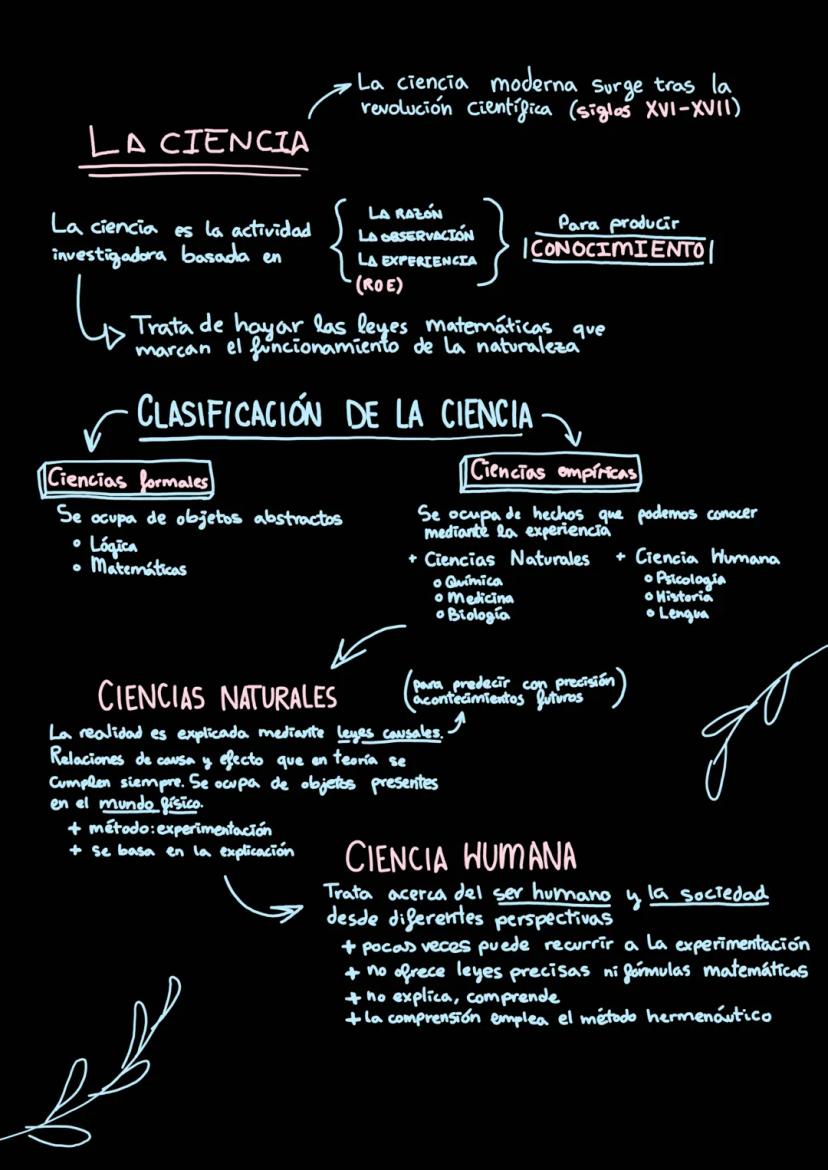 La ciencia moderna surge tras la
revolución científica (siglos XVI-XVII)
LA CIENCIA
La ciencia es la actividad
investigadora basada en
LA RAZÓN
LA OBSERVACIÓN
LA EXPERIENCIA
(ROE)
Para producir
CONOCIMIENTO
Trata de hayar las leyes matemáticas que
marcan el funcionamiento de la naturaleza
CLASIFICACIÓN DE LA CIENCIA
Ciencias formales
Se ocupa de objetos abstractos
• Lógica
• Matemáticas
Ciencias empíricas
Se ocupa de hechos que podemos conocer
mediante la experiencia
+ Ciencias Naturales
o Química
o Medicina
o Biología
+ Ciencia Humana
o Psicología
o Historia
o Lengua
CIENCIAS NATURALES
(para predecir con precisión
acontecimientos futuros)
La realidad es explicada mediante leyes causales.
Relaciones de causa y efecto que en teoría se
cumplen siempre. Se ocupa de objetos presentes
en el mundo físico.
+ método: experimentación
+ se basa en la explicación
CIENCIA HUMANA
Trata acerca del ser humano y la sociedad
desde diferentes perspectivas
+ pocas veces puede recurrir a la experimentación
+ no ofrece leyes precisas ni fórmulas matemáticas
+ no explica, comprende
+ la comprensión emplea el método hermenáutico